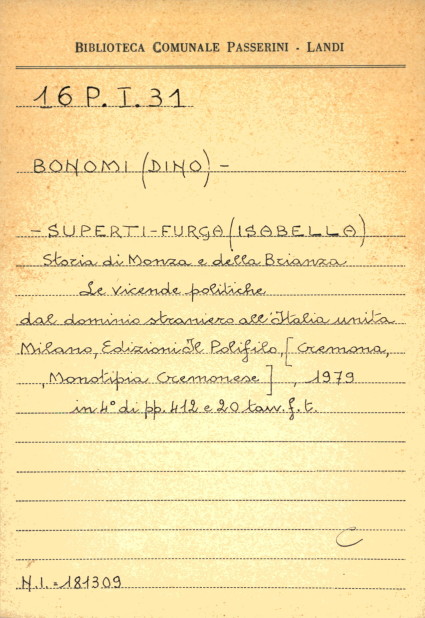 BIBLIOTECA COMUNALE PASSERINI - LANDI
16 P. I. 31
BONOMI (DINO) -
- SUPERTI-FURGA (ISABELLA)
Storia di Monza e della Brianza
Le vicende politiche
dal dominio straniero all'Italia unita
Milano, Edizioni Il Polifilo, [Cremona,
, Monotipia Cremonese] , 1979
in 4° di pp. 412 e 20 tavv. f. t.
C
N.I. = 181309